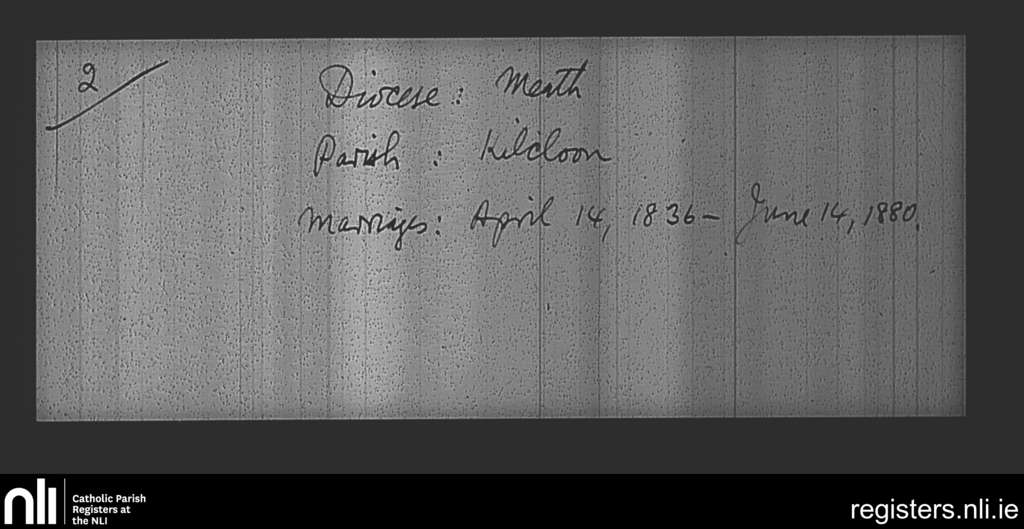 2
Diocese : Meath
Parish : Kilcloon
Marriages: April 14, 1836 – June 14, 1880.
nli
Catholic Parish
Registers at
the NLI
registers.nli.ie